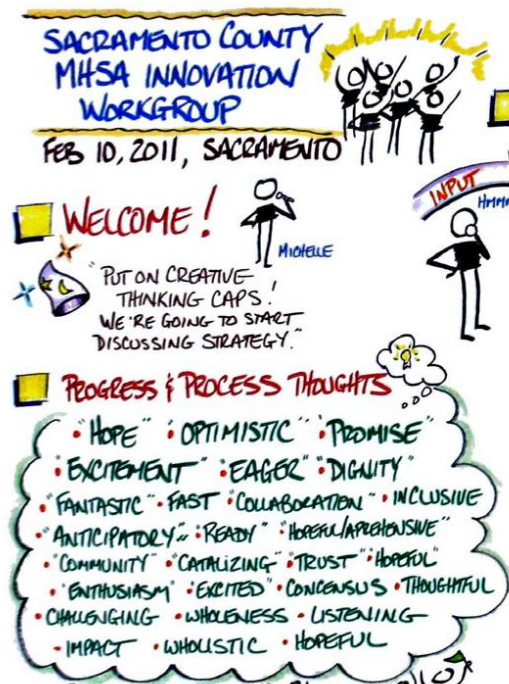 SACRAMENTO COUNTY
MHSA INNOVATION
WORKGROUP
FEB 10, 2011, SACRAMENTO
WELCOME!
MICHELLE
"PUT ON CREATIVE
THINKING CAPS!
WE'RE GOING TO START
DISCUSSING STRATEGY."
INPUT
PROGRESS & PROCESS THOUGHTS
• "HOPE" • "OPTIMISTIC" • "PROMISE"
• "EXCITEMENT" • "EAGER" • "DIGNITY"
• "FANTASTIC" • FAST • "COLLABORATION" • INCLUSIVE
• "ANTICIPATORY" • "READY" • "HOPEFUL/APREHENSIVE"
• "COMMUNITY" • "CATALIZING" • "TRUST" • "HOPEFUL"
• "ENTHUSIASM" • "EXCITED" • CONCENSUS • THOUGHTFUL
• CHALLENGING • WHOLENESS • LISTENING
• IMPACT • WHOLISTIC • HOPEFUL